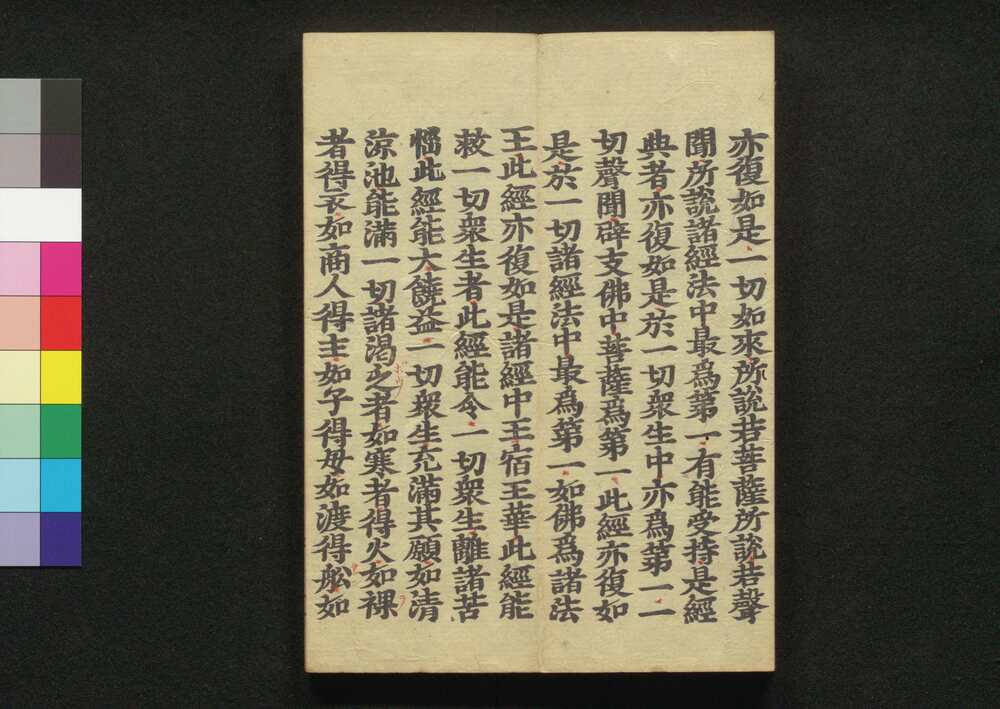 亦復如是一切如來所說若菩薩所說若聲
聞所說諸經法中最爲第一有能受持是經
典者亦復如是於一切衆生中亦爲第一一
切聲聞辟支佛中菩薩爲第一此經亦復如
是於一切諸經法中最爲第一如佛爲諸法
王此經亦復如是諸經中王宿王華此經能
救一切衆生者此經能令一切衆生離諸苦
惱此經能大饒益一切衆生充滿其願如清
涼池能滿一切諸渴乏者如寒者得火如裸
者得衣如商人得主如子得母如渡得舩如